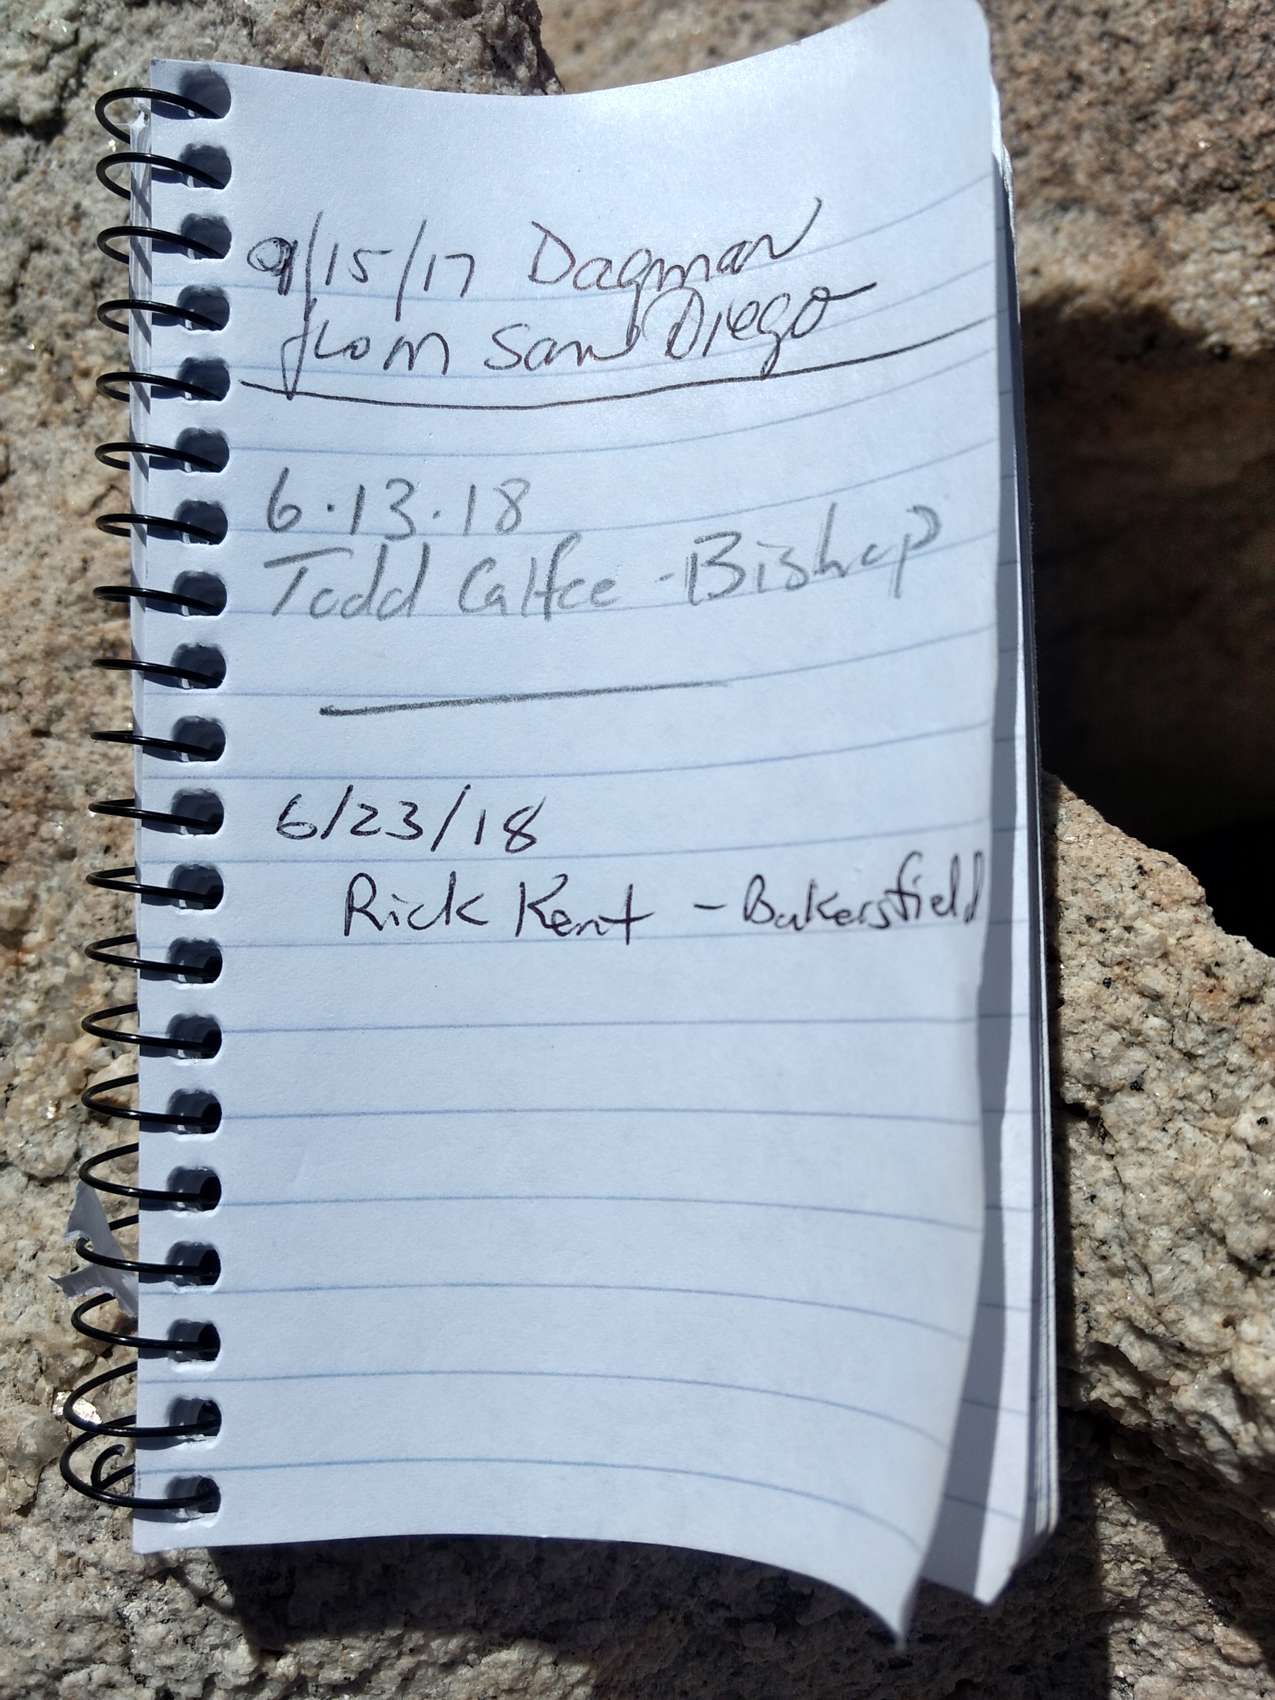 9/15/17 Dagmar
from San Diego
6.13.18
Todd Calfee - Bishop
6/23/18
Rick Kent - Bakersfield